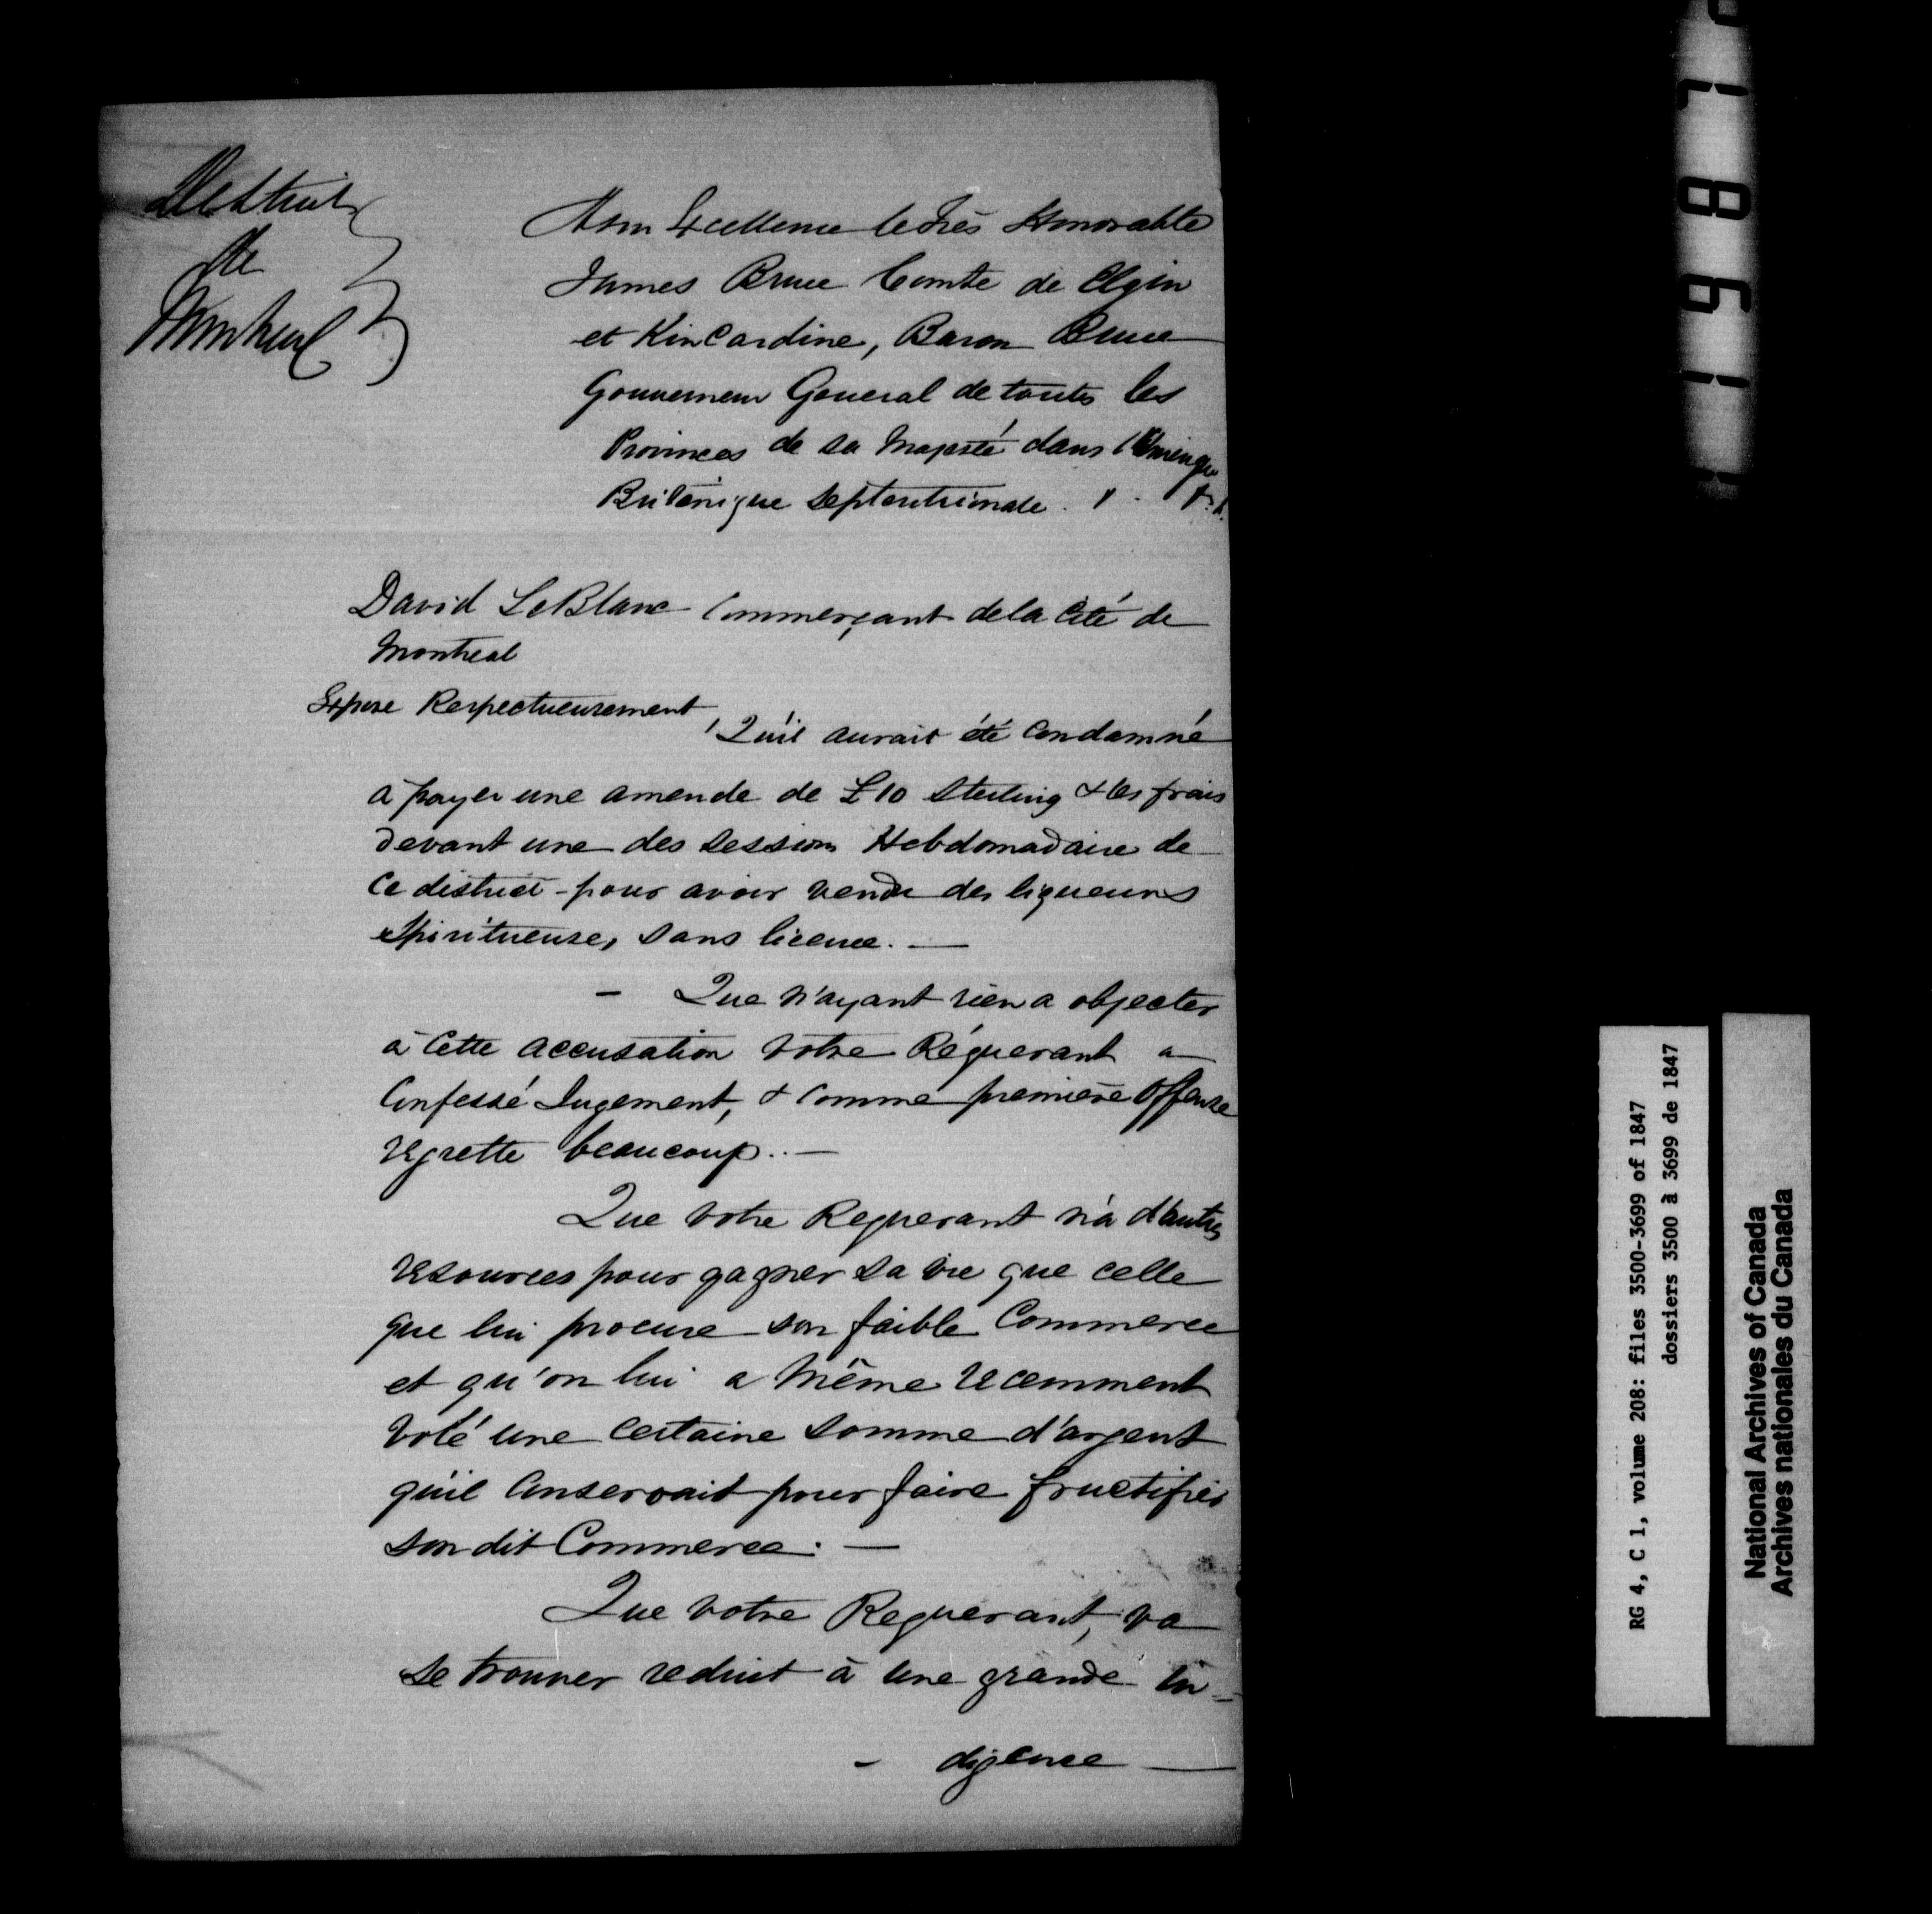 District
de
Montreal
A son Excellence le très Honorable
James Bruce Comte de Elgin
et KinCardine, Baron Bruce
Gouverneur General de toutes les
Provinces de sa Majesté dans l'Amerique
Britanique Septentrionale. &. &.&.
David LeBlanc Commerçant de la Cité de
Montreal
Expose Respectueusement,
Qu'il aurait été Condamné
à payer une amende de £10 Sterling & les frais
devant une des session Hebdomadaire de
Ce district - pour avoir vendu des liqueurs
Spiritueuses sans licence. —
— Que n'ayant rien a objecter
à Cette accusation votre Réquerant a
Confessé Jugement, & Comme première Offense
regrette beaucoup.. —
Que votre Requerant n'a d'autres
resources pour gagner sa vie que celle
que lui procure son faible Commerce
et qu'on lui a même recemment
volé une certaine somme d'argent
qu'il Conservait pour faire fructifier
son dit Commerce. —
Que votre Requerant, va
se trouver reduit à une grande in=
- digence —
1678
RG 4, C 1, volume 208: files 3500-3699 of 1847
dossiers 3500 à 3699 de 1847
National Archives of Canada
Archives nationales du Canada